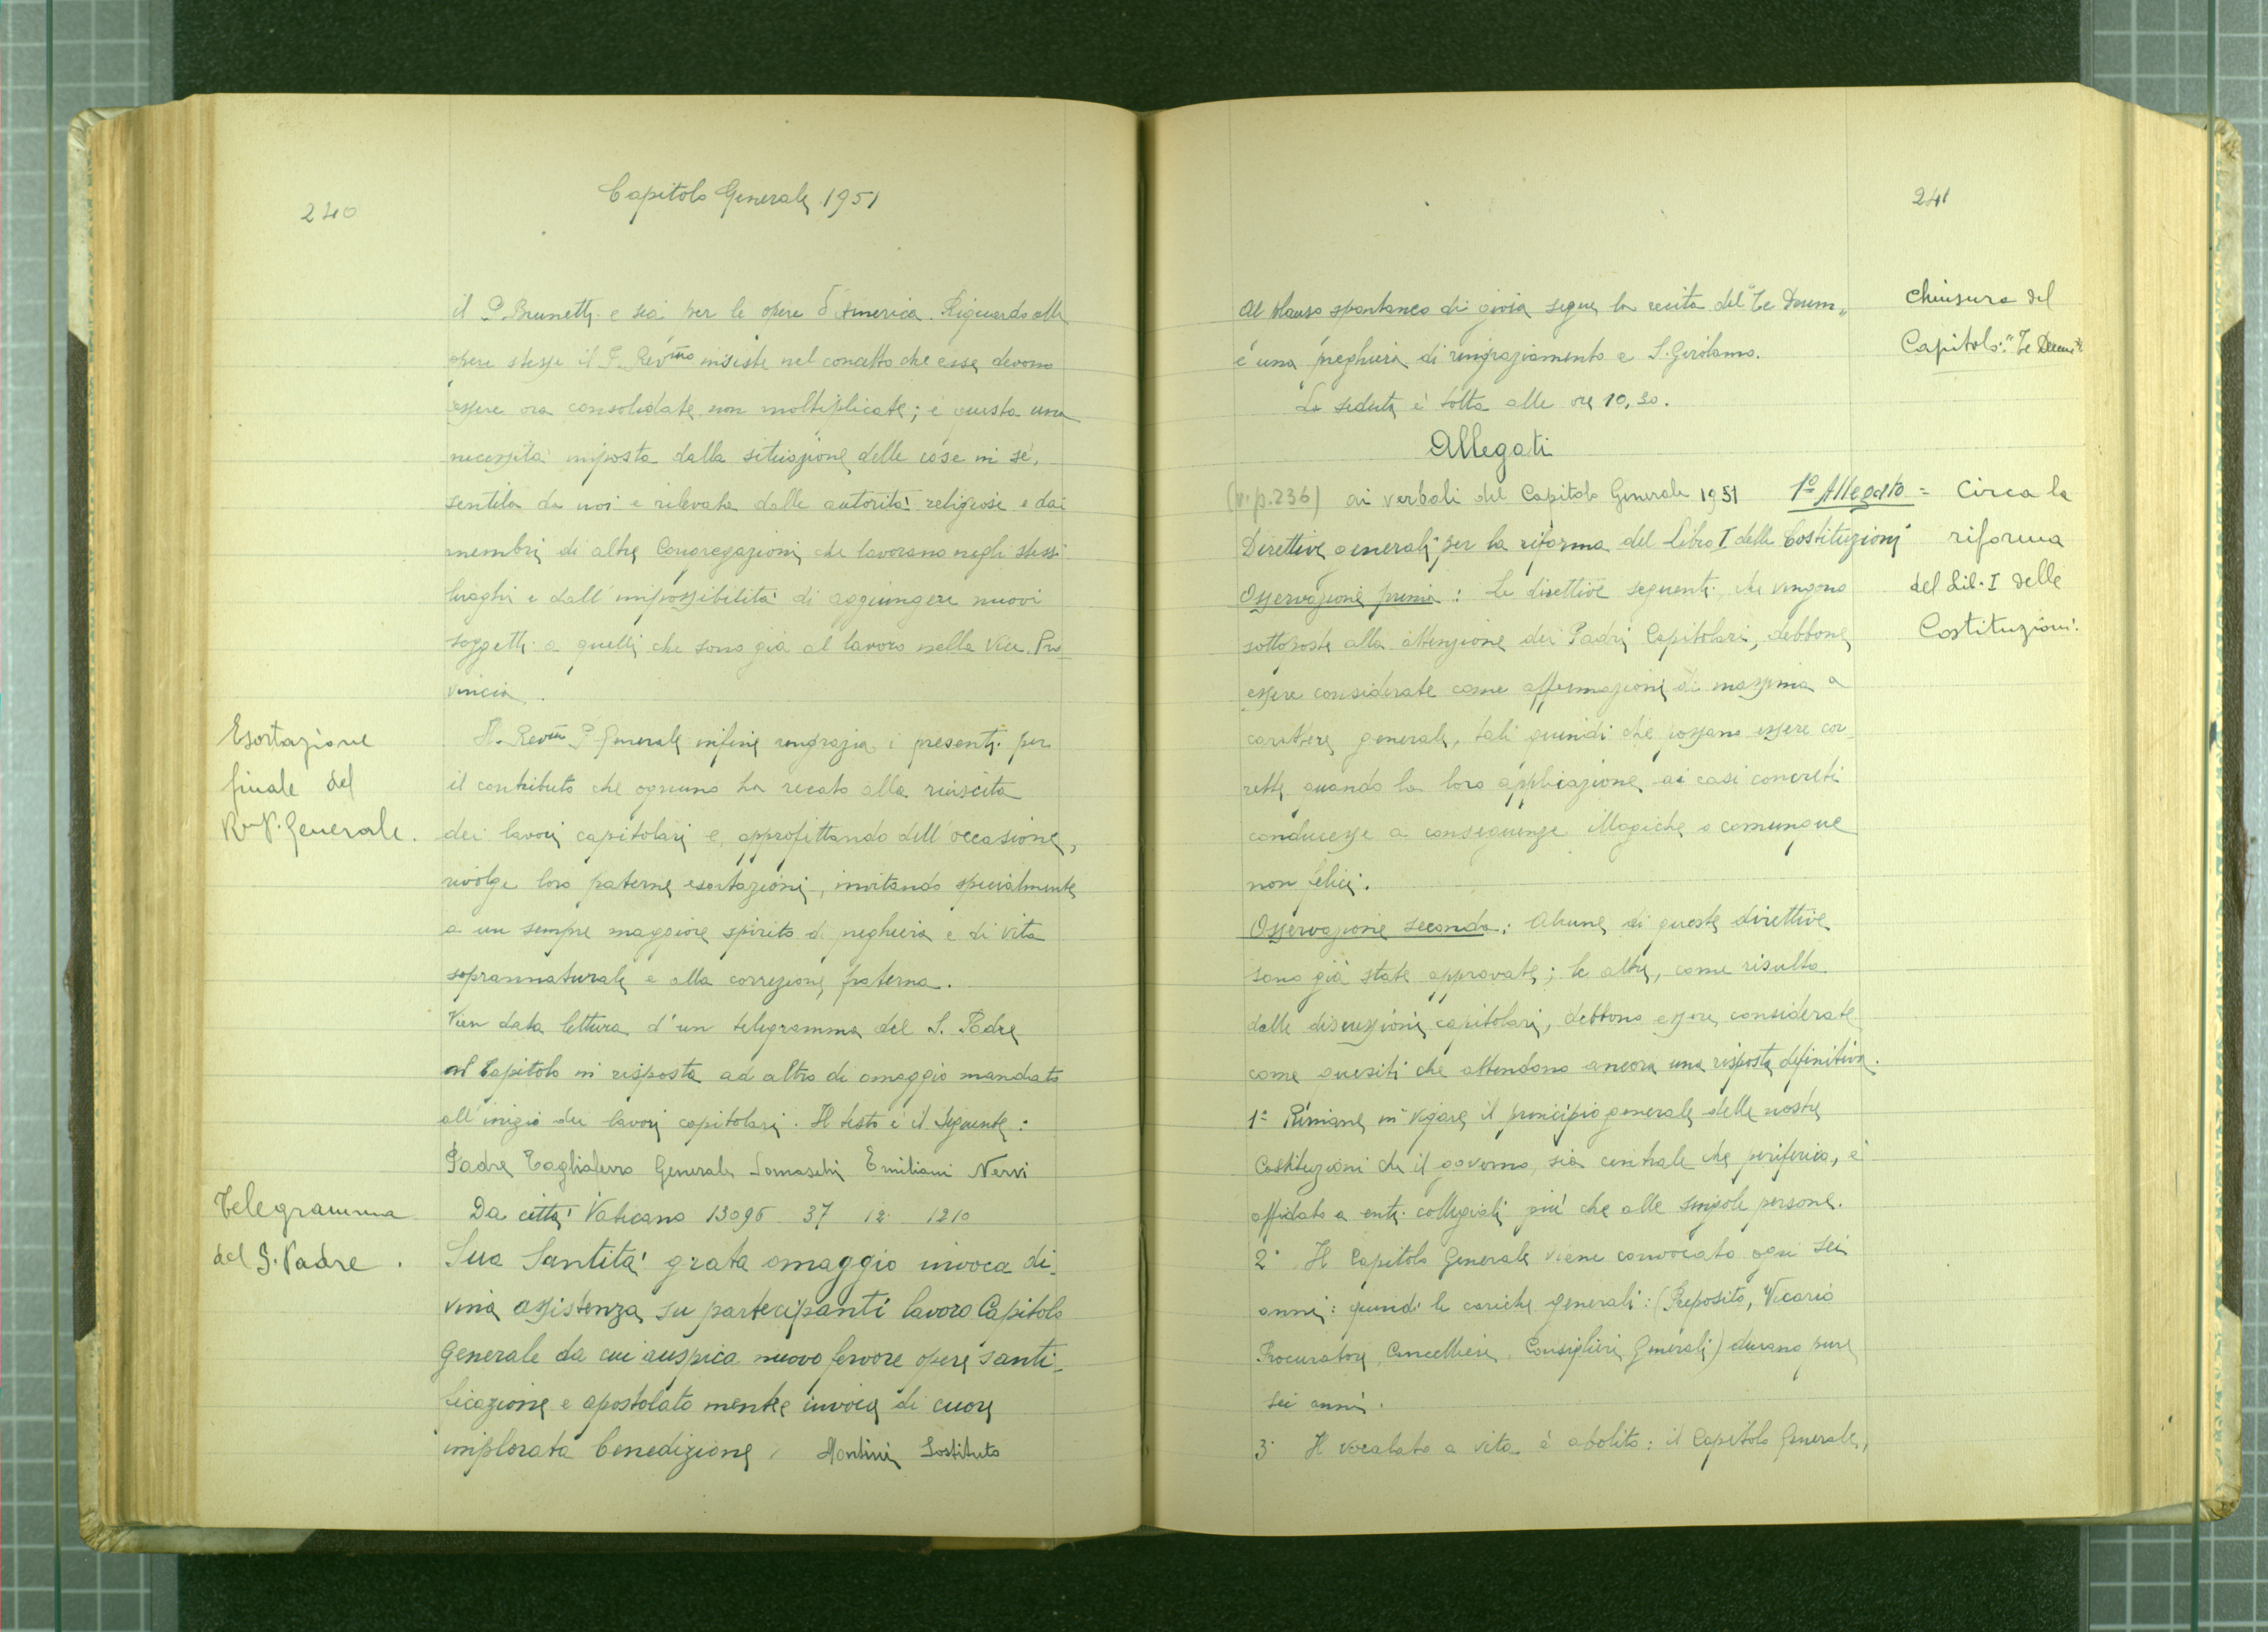 240
Capitolo Generale 1951
il P. Brunetti e sia per le opere d'America. Riguardo alle
opere stesse il P. Rev.mo insiste nel concetto che esse devono
essere ora consolidate non moltiplicate; è questa una
necessità imposta dalla situazione delle cose in sè,
sentita da noi e rilevata dalle autorità religiose e dai
membri di altre Congregazioni che lavorano negli stessi
luoghi e dall'impossibilità di aggiungere nuovi
soggetti a quelli che sono già al lavoro nella Vice-Pro
vincia.
Esortazione
finale del
R.mo P. Generale.
Il Rev.mo P. Generale infine ringrazia i presenti per
il contributo che ognuno ha recato alla riuscita
dei lavori capitolari e, approfittando dell'occasione,
rivolge loro paterne esortazioni, invitando specialmente
a un sempre maggiore spirito di preghiera e di vita
soprannaturale e alla correzione fraterna.
Vien data lettura d'un telegramma del S. Padre
al Capitolo in risposta ad altro di omaggio mandato
all'inizio dei lavori capitolari. Il testo è il seguente:
Padre Tagliaferro Generale Somaschi Emiliani Nervi
Telegramma
del S. Padre.
Da città Vaticano 13096 37 12 1210
Sua Santità grata omaggio invoca di-
vina assistenza su partecipanti lavoro Capitolo
Generale da cui auspica nuovo fervore opere santi-
ficazione e apostolato mentre invia di cuore
implorata benedizione. Montini Sostituto
241
Al plauso spontaneo di gioia segue la recita del "Te Deum"
e una preghiera di ringraziamento a S. Girolamo.
La seduta è tolta alle ore 10,30.
Chiusura del
Capitolo: "Te Deum".
Allegati
(v. p. 236) ai verbali del Capitolo Generale 1951 1º Allegato =
Circa la
riforma
del Lib. I delle
Costituzioni.
Direttive generali per la riforma del Libro I delle Costituzioni
Osservazione prima: Le direttive seguenti che vengono
sottoposte alla attenzione dei Padri Capitolari, debbono
essere considerate come affermazioni di massima a
carattere generale, tali quindi che possano essere cor-
rette quando la loro applicazione ai casi concreti
conducesse a conseguenze illogiche o comunque
non felici.
Osservazione seconda: Alcune di queste direttive
sono già state approvate; le altre, come risulta
dalle discussioni capitolari, debbono essere considerate
come quesiti che attendono ancora una risposta definitiva.
1º Rimane in vigore il principio generale delle nostre
Costituzioni che il governo, sia centrale che periferico, è
affidato a enti collegiali più che alle singole persone.
2º Il Capitolo Generale viene convocato ogni sei
anni: quindi le cariche generali: (Preposito, Vicario
Procuratore, Cancelliere, Consiglieri Generali) durano pure
sei anni.
3º Il vocalato a vita è abolito: il Capitolo Generale,